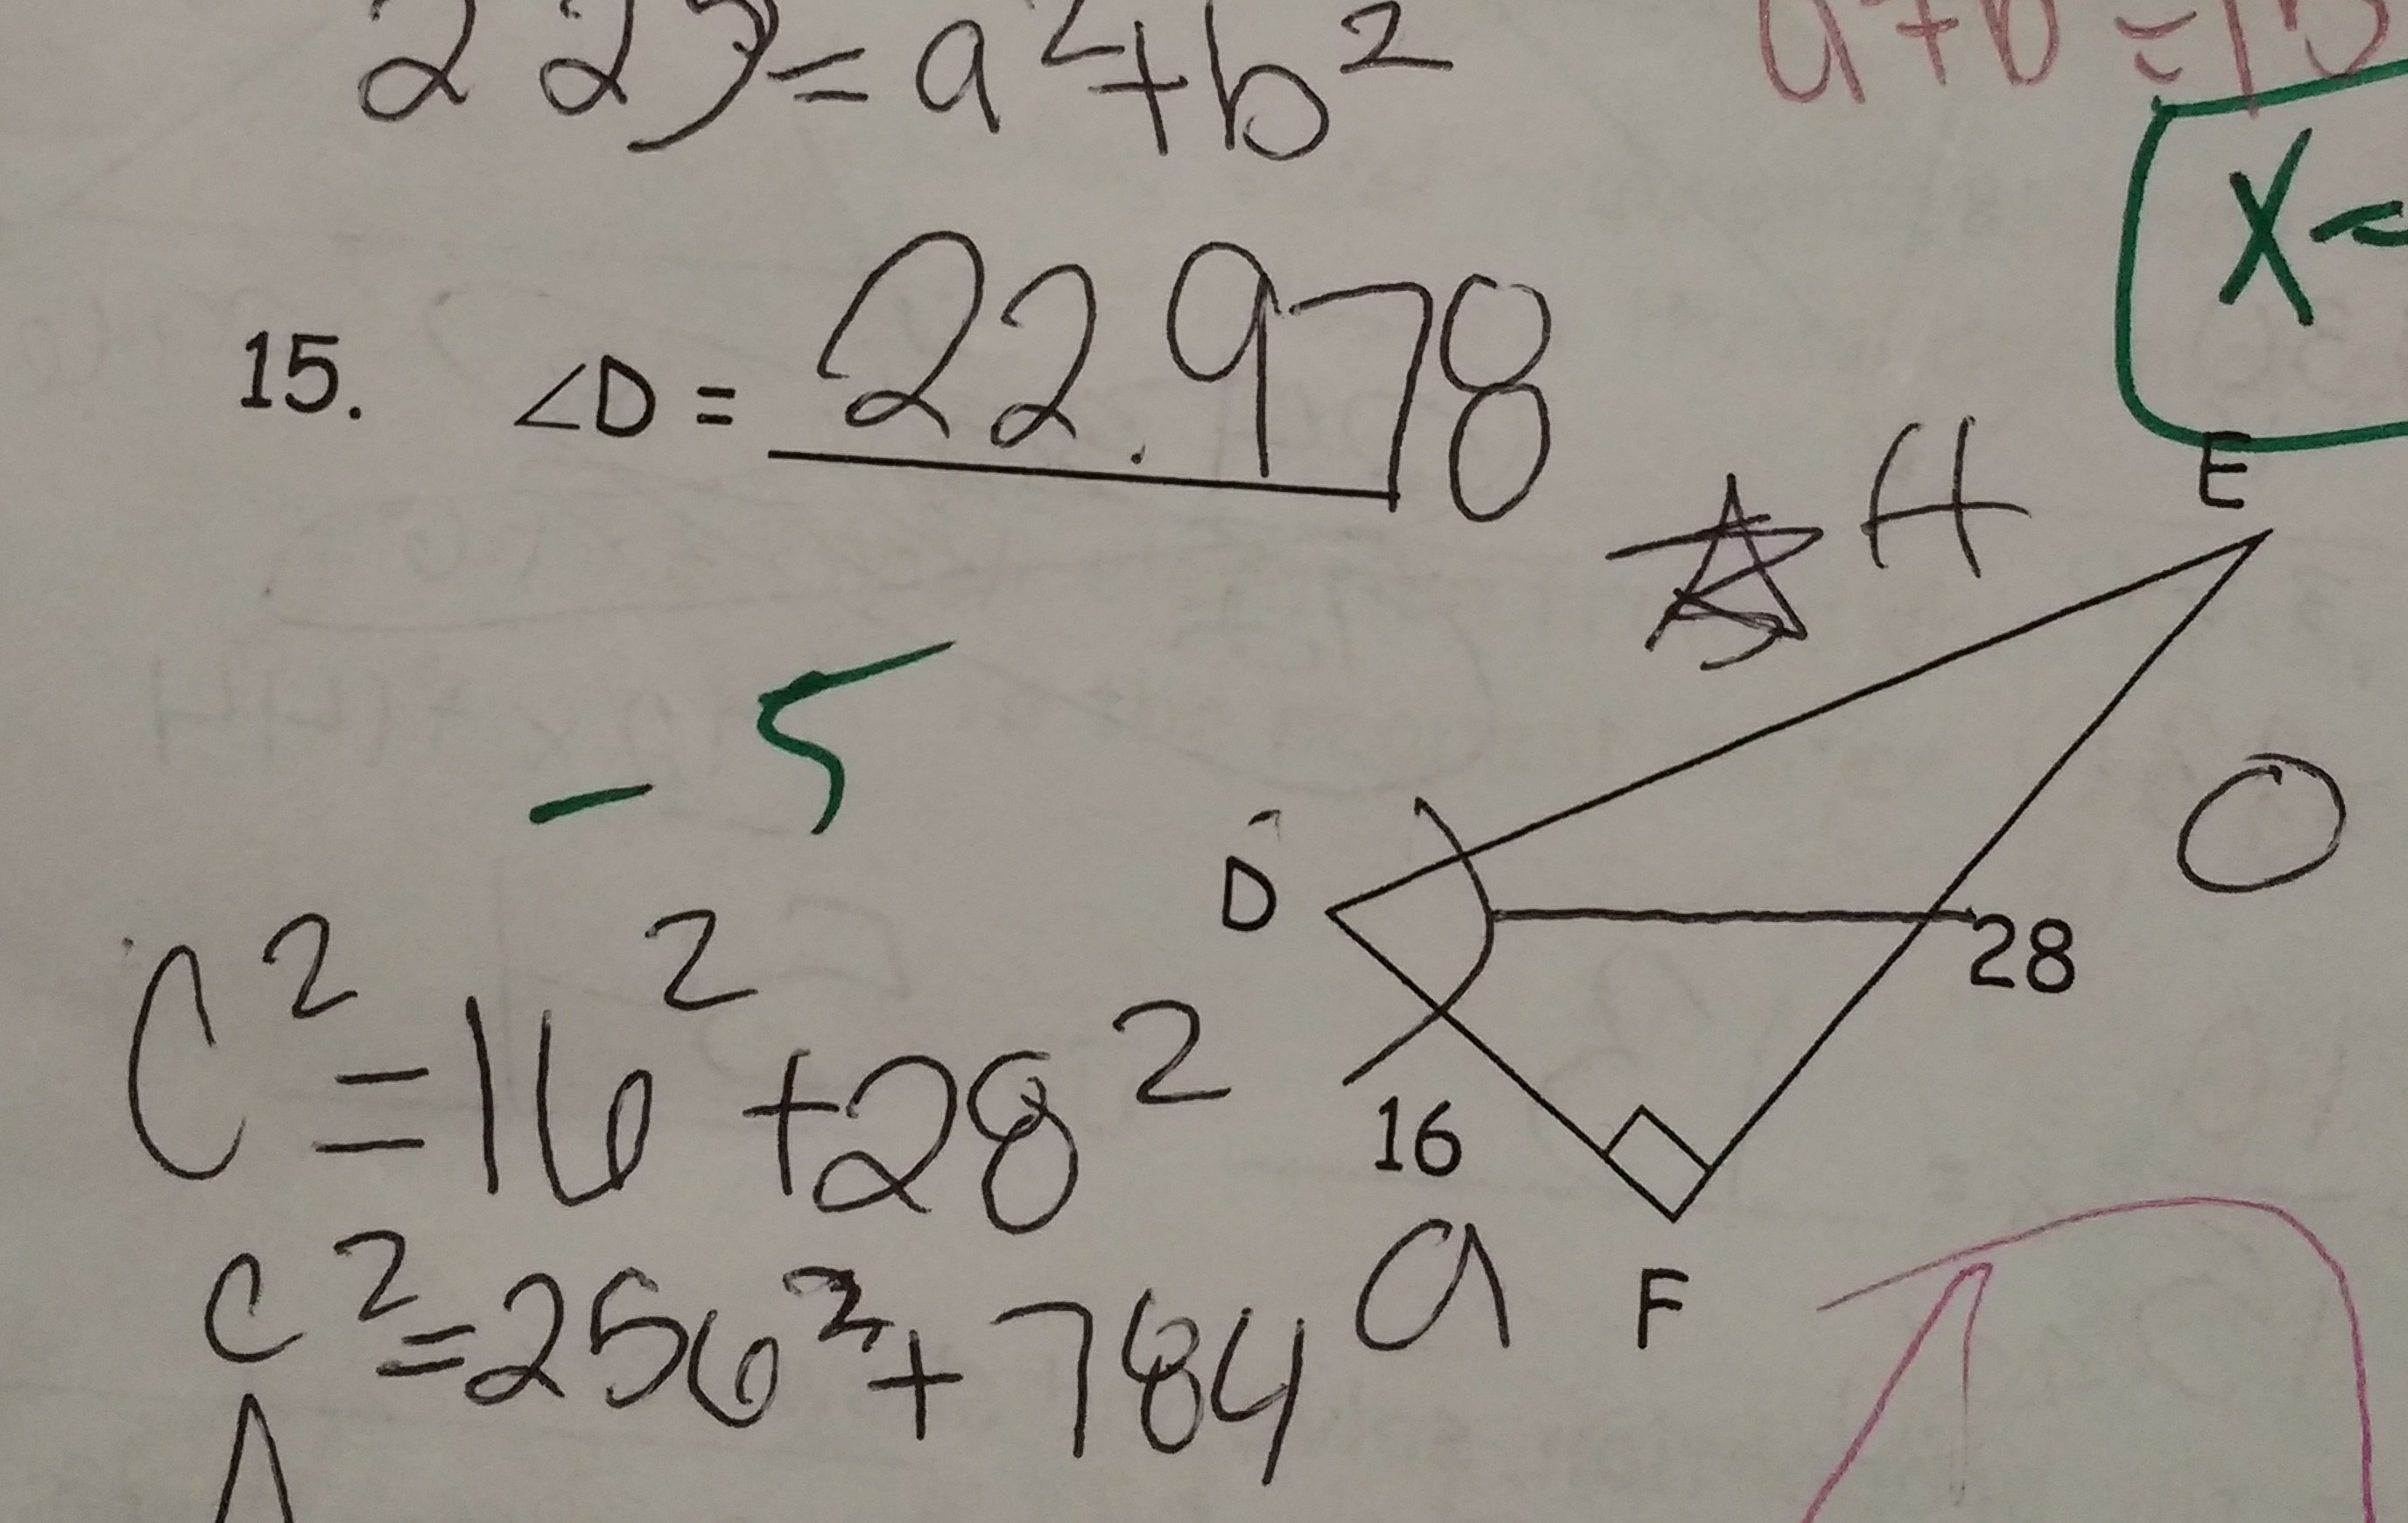 225 = a² + b²
a+b=15
X=
15. ∠D = 22.978
H
E
-5
O
D
28
C² = 16² + 28²
16
a
F
c² = 256² + 784